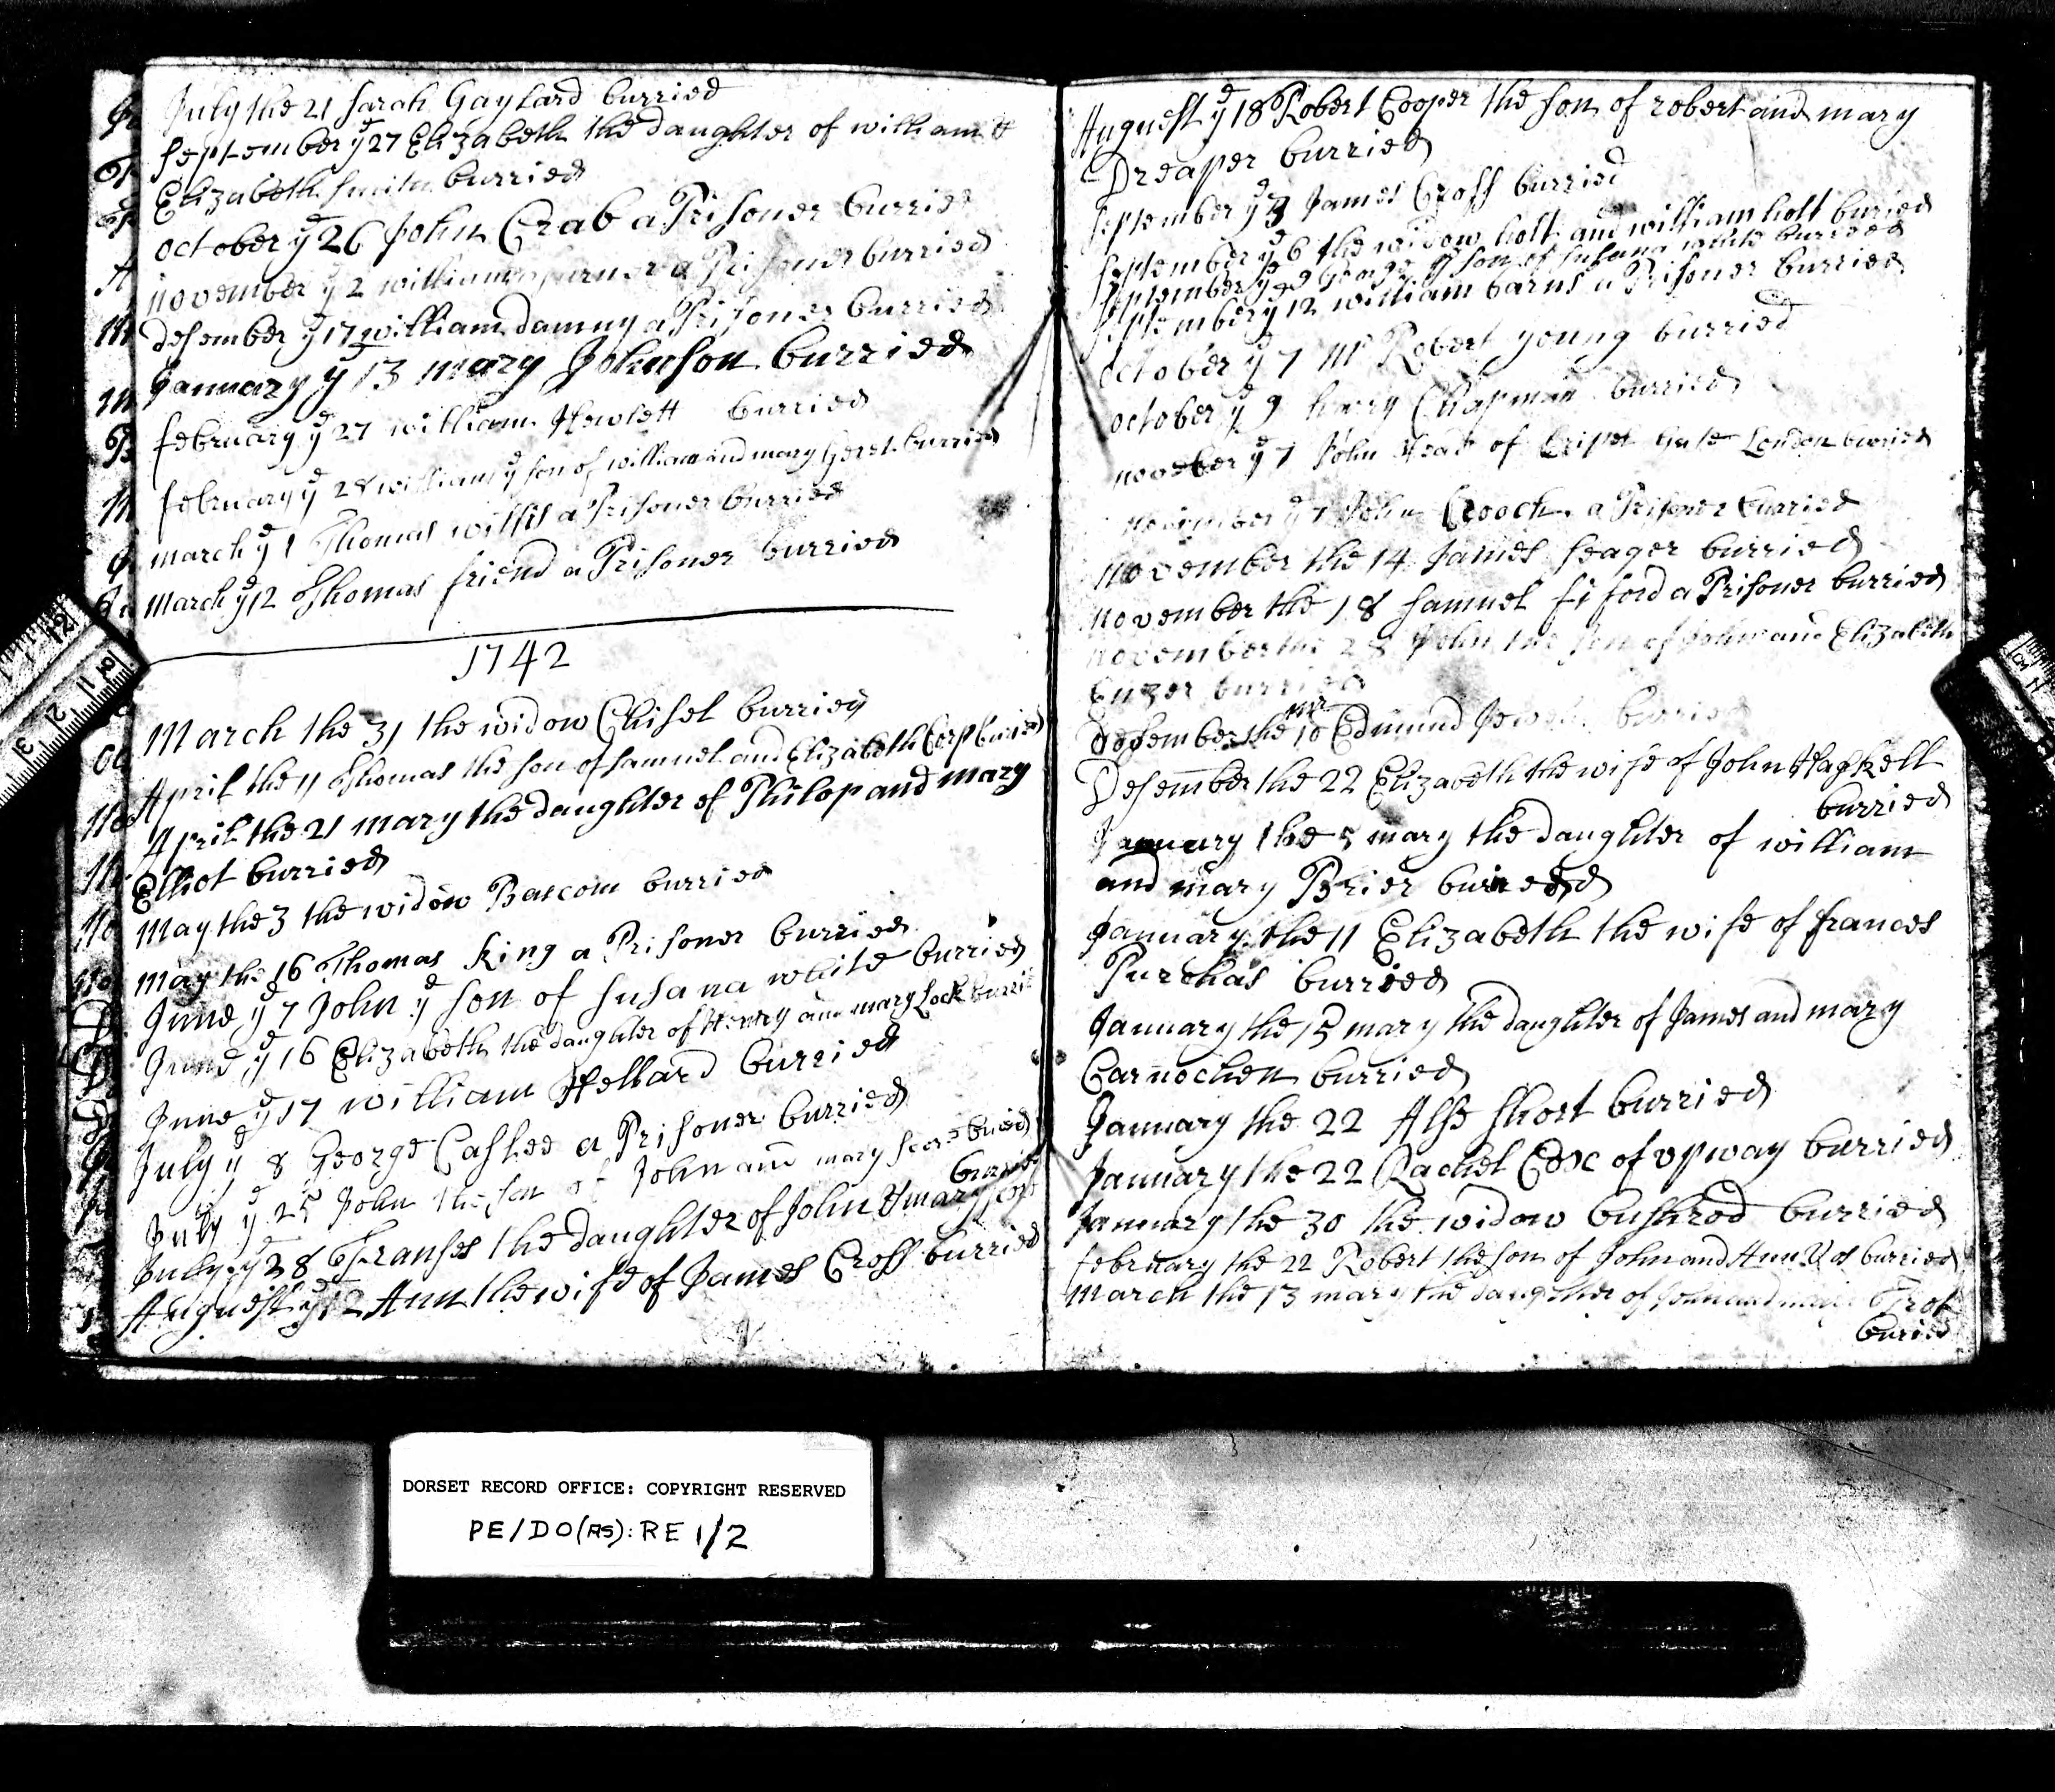 July the 21 Sarah Gaylard burried
September yᵉ 27 Elizabeth the daughter of william &
Elizabeth Smith burried
october yᵉ 26 John Crab a Prisoner burried
november yᵉ 2 william a Prisoner burried
desember yᵉ 17 william dammy a Prisoner burried
January yᵉ 13 mary Johnson burried
february yᵉ 27 william Hewlett burried
february yᵉ 28 william yᵉ son of william and mary burried
march yᵉ 1 Thomas willis a Prisoner burried
march yᵉ 12 Thomas friend a Prisoner burried
1742
March the 31 the widow Chisel burried
April the 11 Thomas the son of Samuel and Elizabeth Corp buried
April the 21 mary the daughter of Philop and mary
Elliot burried
May the 3 the widow Bascom burried
may the 16 Thomas King a Prisoner burried
June yᵉ 7 John yᵉ son of Susana white burried
June yᵉ 16 Elizabeth the daughter of Henry and mary Lock burried
June yᵉ 17 william Hellard burried
July yᵉ 8 George Cashee a Prisoner burried
July yᵉ 25 John the son of John and mary buried
burried
July yᵉ 28 Franses the daughter of John & mary
Auguest yᵉ 12 Ann the wife of James Cross burried
Auguest yᵉ 18 Robert Cooper the son of robert and mary
Dreaper burried
September yᵉ 3 James Cross burried
September yᵉ 6 the widow holt and william holt buried
September yᵉ 9 George yᵉ son of Susana white burried
September yᵉ 12 william barns a Prisoner burried
October yᵉ 7 Mʳ Robert young burried
october yᵉ 9 harry Chapman burried
november yᵉ 7 John Head of Cripel Gate London burried
november yᵉ 7 John Crooch a Prisoner burried
november the 14 James Seager burried
november the 18 Samuel fiford a Prisoner burried
november the 28 John the son of John and Elizabeth
burried
mr
desember the 10 Edmund burried
Desember the 22 Elizabeth the wife of John Haskell
burried
January the 5 mary the daughter of william
and mary Brier burried
January the 11 Elizabeth the wife of frances
Purchas burried
January the 15 mary the daughter of James and mary
Carnochen burried
January the 22 Alse Short burried
January the 22 Rachel Cox of upway burried
January the 30 the widow bushrod burried
february the 22 Robert the son of John and Ann burried
March the 13 mary the daughter of John and mary Trot
buried
DORSET RECORD OFFICE: COPYRIGHT RESERVED
PE/DO(AS): RE 1/2